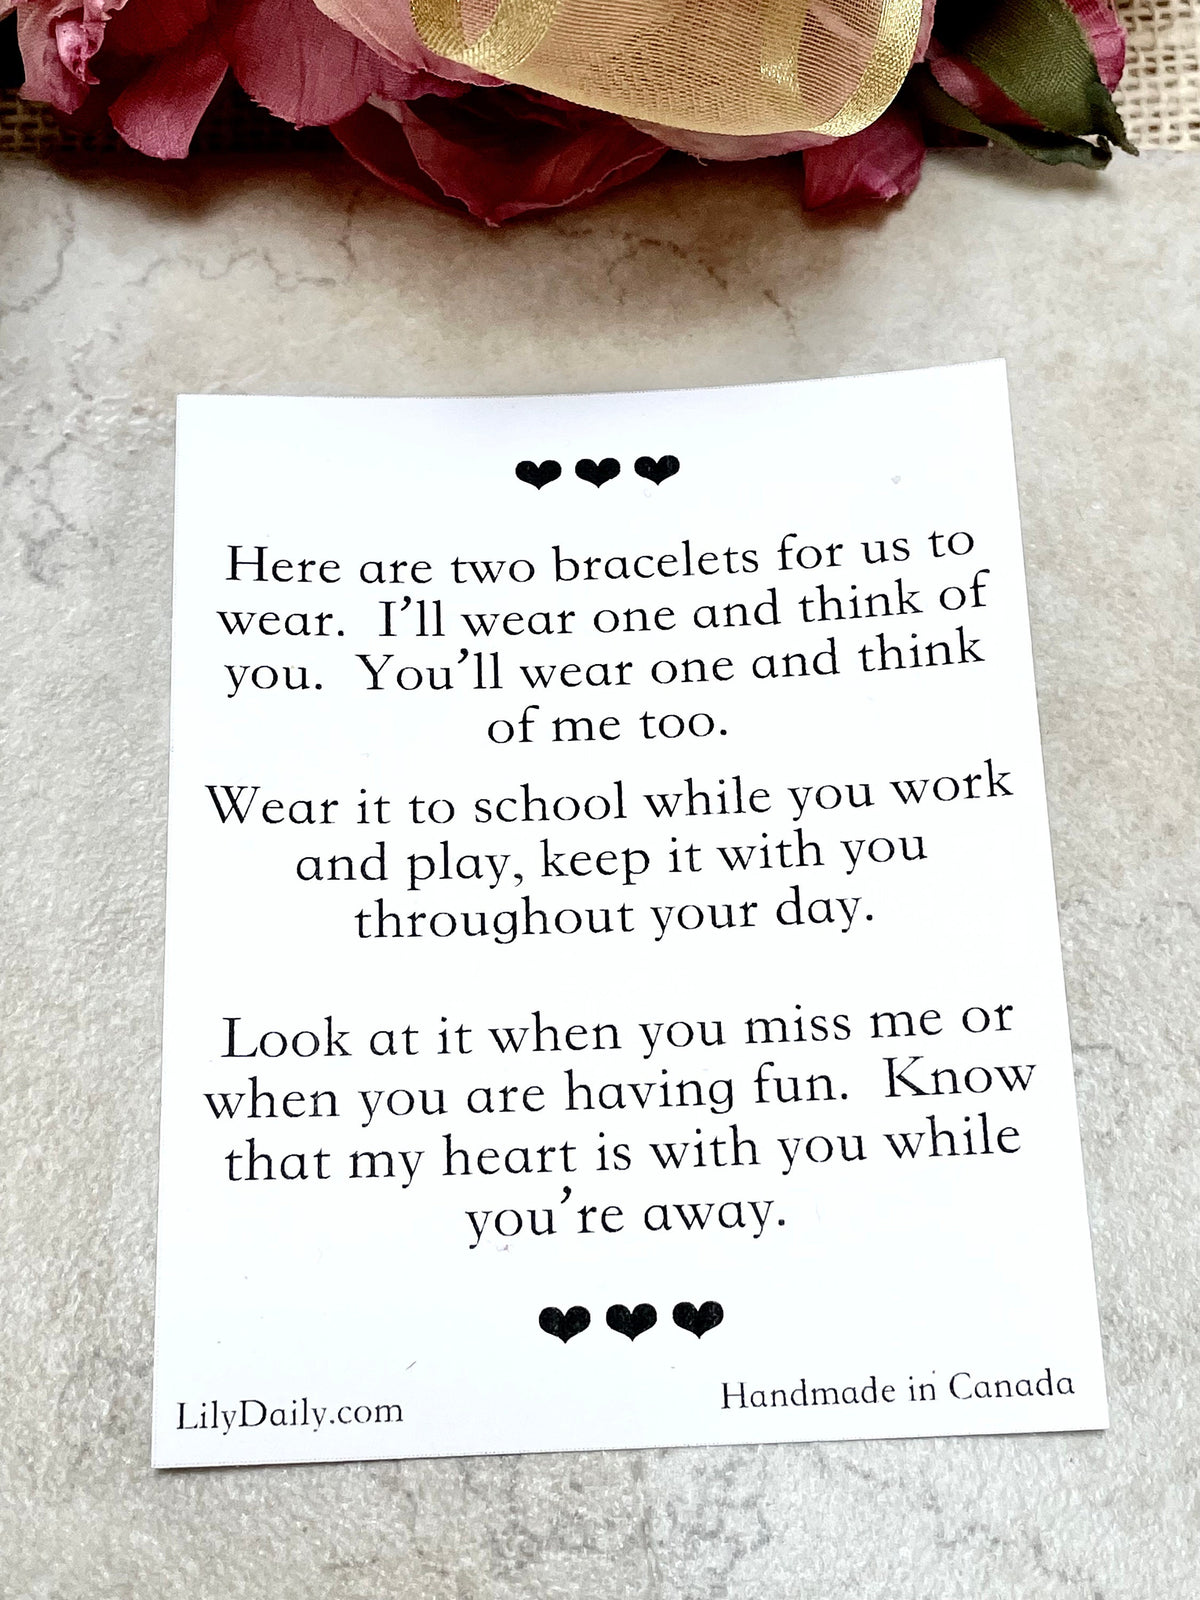 ♥ ♥ ♥
Here are two bracelets for us to
wear. I'll wear one and think of
you. You'll wear one and think
of me too.
Wear it to school while you work
and play, keep it with you
throughout your day.
Look at it when you miss me or
when you are having fun. Know
that my heart is with you while
you're away.
♥ ♥ ♥
LilyDaily.com
Handmade in Canada